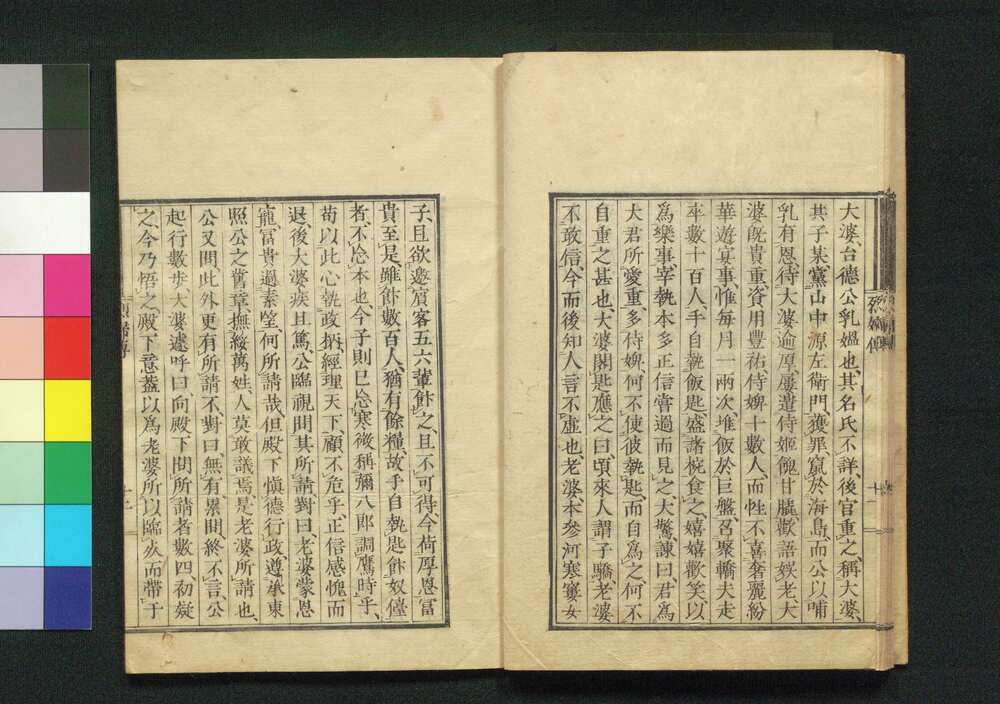 大婆、台德公乳媼也、其名氏不詳、後宮重之、稱大婆、
其子某、黨山中源左衛門、獲罪竄於海島、而公以哺
乳有恩、待大婆逾厚、屢遣侍姬餽甘膬、歡語娛老大
婆既貴重、資用豐祐侍婢十數人、而性不喜奢麗紛
華遊宴事、惟每月一兩次堆飯於巨盤、召聚轎夫走
卒數十百人、手自執飯匙、盛諸椀食之、嬉嬉歡笑以
爲樂事、宰執本多正信嘗過而見之大驚、諫曰、君爲
大君所愛重、多侍婢、何不使彼執匙、而自爲之、何不
自重之甚也、大婆閣匙應之曰、頃來人謂子驕、老婆
不敢信、今而後知人言不虛也、老婆、本參河寒窶女
子、且欲邀賓客五六輩飰之、且不可得、今荷厚恩冨
貴至是、雖飰數百人、猶有餘糧、故手自執匙飰奴僮
者、不忘本也、今子則已忘寒微稱彌八郎調鷹時乎、
苟以此心執政柄、經理天下、顧不危乎、正信感愧而
退、後大婆疾且篤、公臨視問其所請、對曰、老婆蒙恩
寵冨貴過素望、何所請哉、但殿下愼德行政、遵承東
照公之舊章、撫綏萬姓、人莫敢議焉、是老婆所請也、
公又問、此外更有所請不、對曰、無有、累問終不言、公
起行數步、大婆遽呼曰、向殿下問所請者數四、初疑
之、今乃悟之、殿下意蓋以爲老婆所以臨必而帶于
烈婦傳